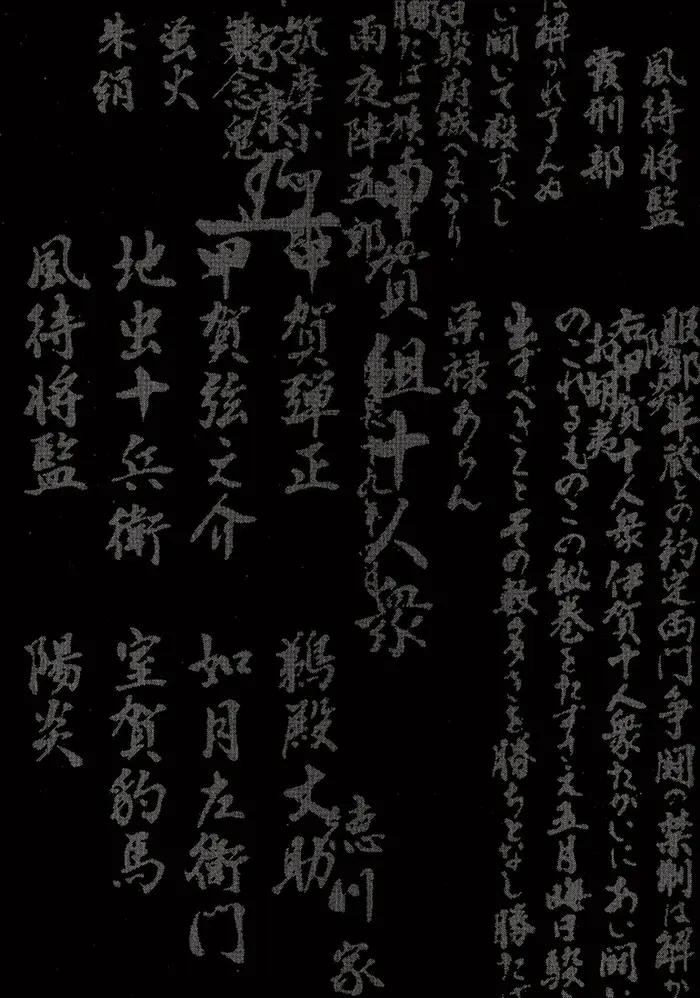 風待将監
霞刑部
は解かれ了んぬ
い闘いて殺すべし
日駿府城へまかり
勝たば一族
雨夜陣五郎
筑摩小四
蓑念鬼
螢火
朱絹
服部半蔵との約定両門争闘の禁制は解か
陽炎
右甲賀十人衆伊賀十人衆たがいにあい闘い
胡夷
のこれるものこの秘巻をたずさえ五月晦日駿
出ずべきことその数多きを勝ちとなし勝たば
栄禄あらん
甲賀組十人衆
甲賀弾正
甲賀弦之介
地虫十兵衛
風待将監
鵜殿丈助
如月左衛門
室賀豹馬
陽炎
徳川家